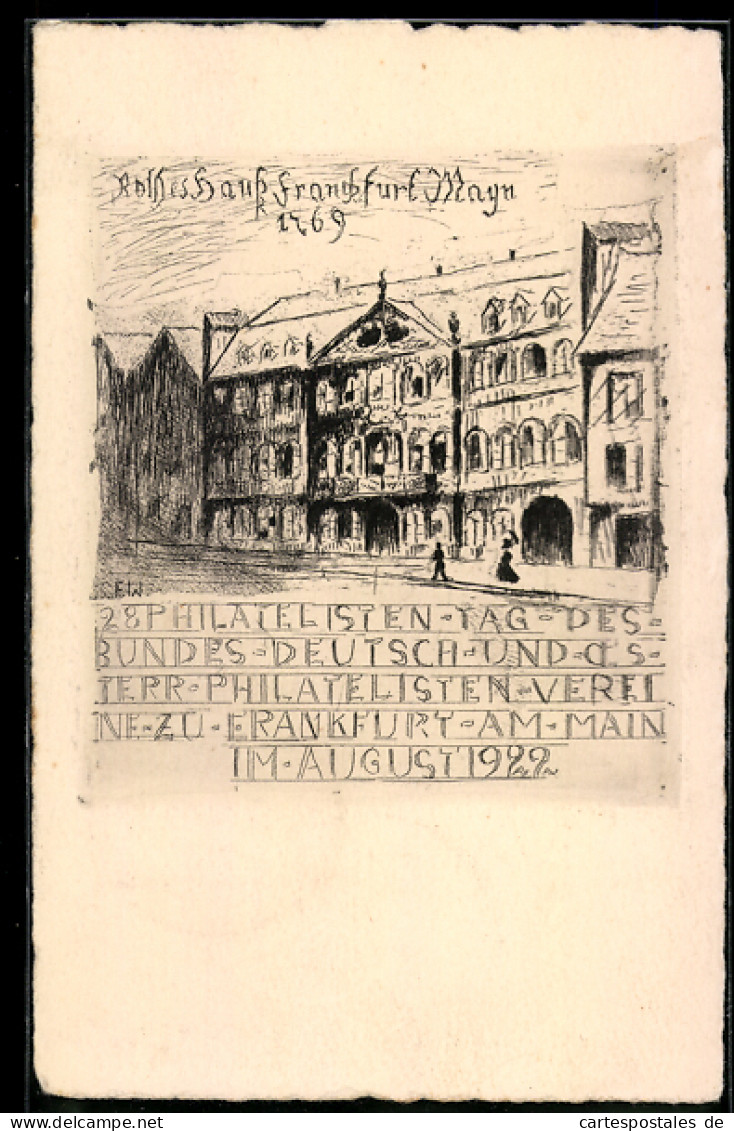 Rothes Hauß Franckfurt Mayn
1769
E.W.
28 PHILATELISTEN-TAG-DES-
BUNDES-DEUTSCH-UND-ŒS-
TERR-PHILATELISTEN-VEREI
NE-ZU-FRANKFURT-AM-MAIN
IM-AUGUST 1922
delcampe.net
cartespostales de